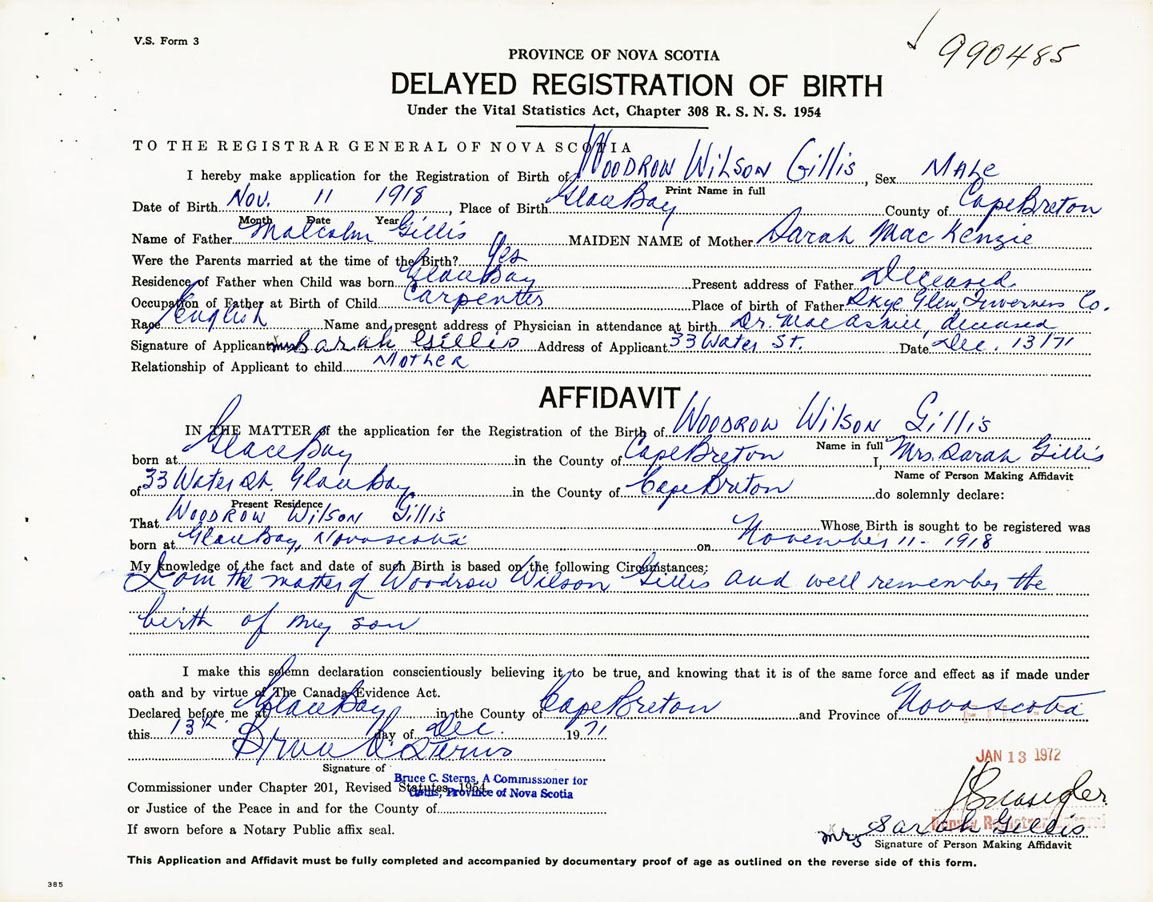 V.S. Form 3
990485
PROVINCE OF NOVA SCOTIA
DELAYED REGISTRATION OF BIRTH
Under the Vital Statistics Act, Chapter 308 R. S. N. S. 1954
TO THE REGISTRAR GENERAL OF NOVA SCOTIA
I hereby make application for the Registration of Birth of Woodrow Wilson Gillis, Sex Male
Print Name in full
Date of Birth Nov. 11 1918, Place of Birth Glace Bay County of Cape Breton
Month Date Year
Name of Father Malcolm Gillis MAIDEN NAME of Mother Sarah MacKenzie
Were the Parents married at the time of the Birth? Yes
Residence of Father when Child was born Glace Bay Present address of Father Deceased
Occupation of Father at Birth of Child Carpenter Place of birth of Father Skye Glen, Inverness Co.
Race English Name and present address of Physician in attendance at birth Dr. MacAskill, deceased
Signature of Applicant Mrs Sarah Gillis Address of Applicant 33 Water St. Date Dec. 13/71
Relationship of Applicant to child Mother
AFFIDAVIT
IN THE MATTER of the application for the Registration of the Birth of Woodrow Wilson Gillis
Name in full
born at Glace Bay in the County of Cape Breton I, Mrs. Sarah Gillis
Name of Person Making Affidavit
of 33 Water St. Glace Bay in the County of Cape Breton do solemnly declare:
Present Residence
That Woodrow Wilson Gillis Whose Birth is sought to be registered was
born at Glace Bay, Nova Scotia on November 11 - 1918
My knowledge of the fact and date of such Birth is based on the following Circumstances:
I am the mother of Woodrow Wilson Gillis and well remember the
birth of my son
I make this solemn declaration conscientiously believing it to be true, and knowing that it is of the same force and effect as if made under
oath and by virtue of The Canada Evidence Act.
Declared before me at Glace Bay in the County of Cape Breton and Province of Nova Scotia
this 13th day of Dec. 1971
Bruce C. Sterns
Signature of
JAN 13 1972
Bruce C. Sterns, A Commissioner for
Oaths, Province of Nova Scotia
Commissioner under Chapter 201, Revised Statutes, 1954
or Justice of the Peace in and for the County of
Deputy Registrar General
If sworn before a Notary Public affix seal.
Mrs Sarah Gillis
Signature of Person Making Affidavit
This Application and Affidavit must be fully completed and accompanied by documentary proof of age as outlined on the reverse side of this form.
385